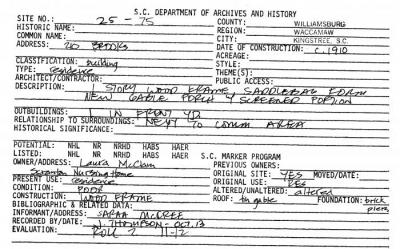 S.C. DEPARTMENT OF ARCHIVES AND HISTORY
SITE NO.: 25 - 75 COUNTY: WILLIAMSBURG
HISTORIC NAME: REGION: WACCAMAW
COMMON NAME: CITY: KINGSTREE, S.C.
ADDRESS: 210 BROOKS DATE OF CONSTRUCTION: c. 1910
ACREAGE:
CLASSIFICATION: building STYLE:
TYPE: residence THEME(S):
ARCHITECT/CONTRACTOR: PUBLIC ACCESS:
DESCRIPTION: 1 STORY WOOD FRAME SADDLEBAG FORM
NEW GABLE PORCH Y SCREENED PORTION
OUTBUILDINGS: 1 IN FRONT YD.
RELATIONSHIP TO SURROUNDINGS: NEXT TO COMM AREA
HISTORICAL SIGNIFICANCE:
POTENTIAL: NHL NR NRHD HABS HAER
LISTED: NHL NR NRHD HABS HAER S.C. MARKER PROGRAM
OWNER/ADDRESS: Laura McClam PREVIOUS OWNERS:
Scranton Nursing Home ORIGINAL SITE: YES MOVED/DATE:
PRESENT USE: residence ORIGINAL USE: RES
CONDITION: POOR ALTERED/UNALTERED: altered
CONSTRUCTION: WOOD FRAME ROOF: tn gable FOUNDATION: brick
BIBLIOGRAPHIC & RELATED DATA: piers
INFORMANT/ADDRESS: SARAH McCREE
RECORDED BY/DATE: J. THOMPSON - OCT. 13
EVALUATION: ROLL 7 11-12